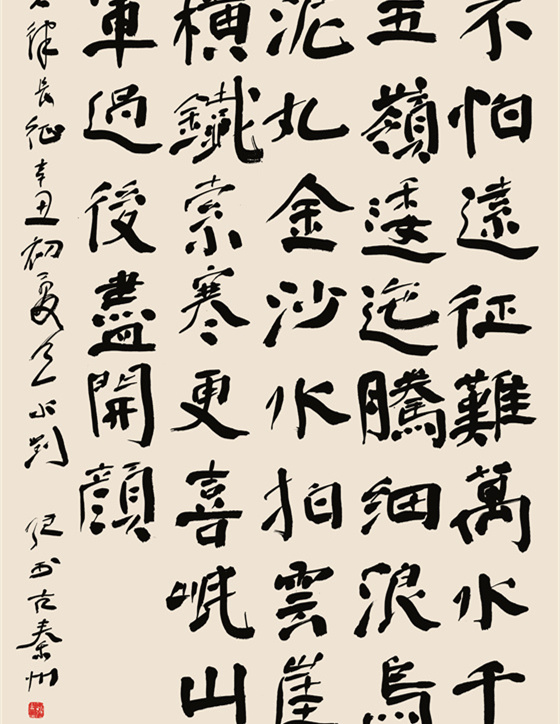 不怕遠征難萬水千
五嶺逶迤騰細浪烏
泥丸金沙水拍雲崖
橫鐵索寒更喜岷山
軍過後盡開顏
律長征辛丑初夏天水劉
書於古秦州